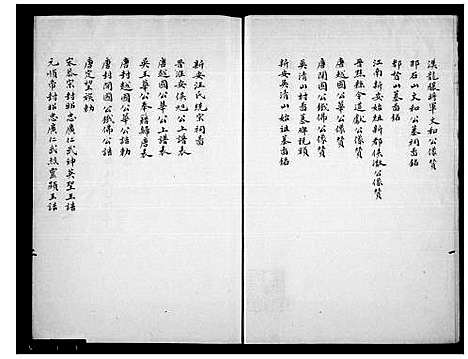 漢龍驤將軍文和公像贊
耶石山文和公墓祠圖銘
郡營山墓圖銘
江南新安始祖新都侯澈公像贊
晉黟縣令道獻公像贊
唐越國公華公像贊
唐開國公鐵佛公像贊
吳清山村圖墓碑説穎
新安吳清山始祖墓圖銘
新安汪氏統宗祠圖
晉淮安侯旭公上譜表
唐越國公華公上譜表
吳王華公奉籍歸唐表
唐封越國公華公誥勅
唐封開國公鐵佛公誥
唐定望族勅
宋恭宗封昭忠廣仁武神英聖王誥
元順帝封昭忠廣仁武烈靈顯王誥